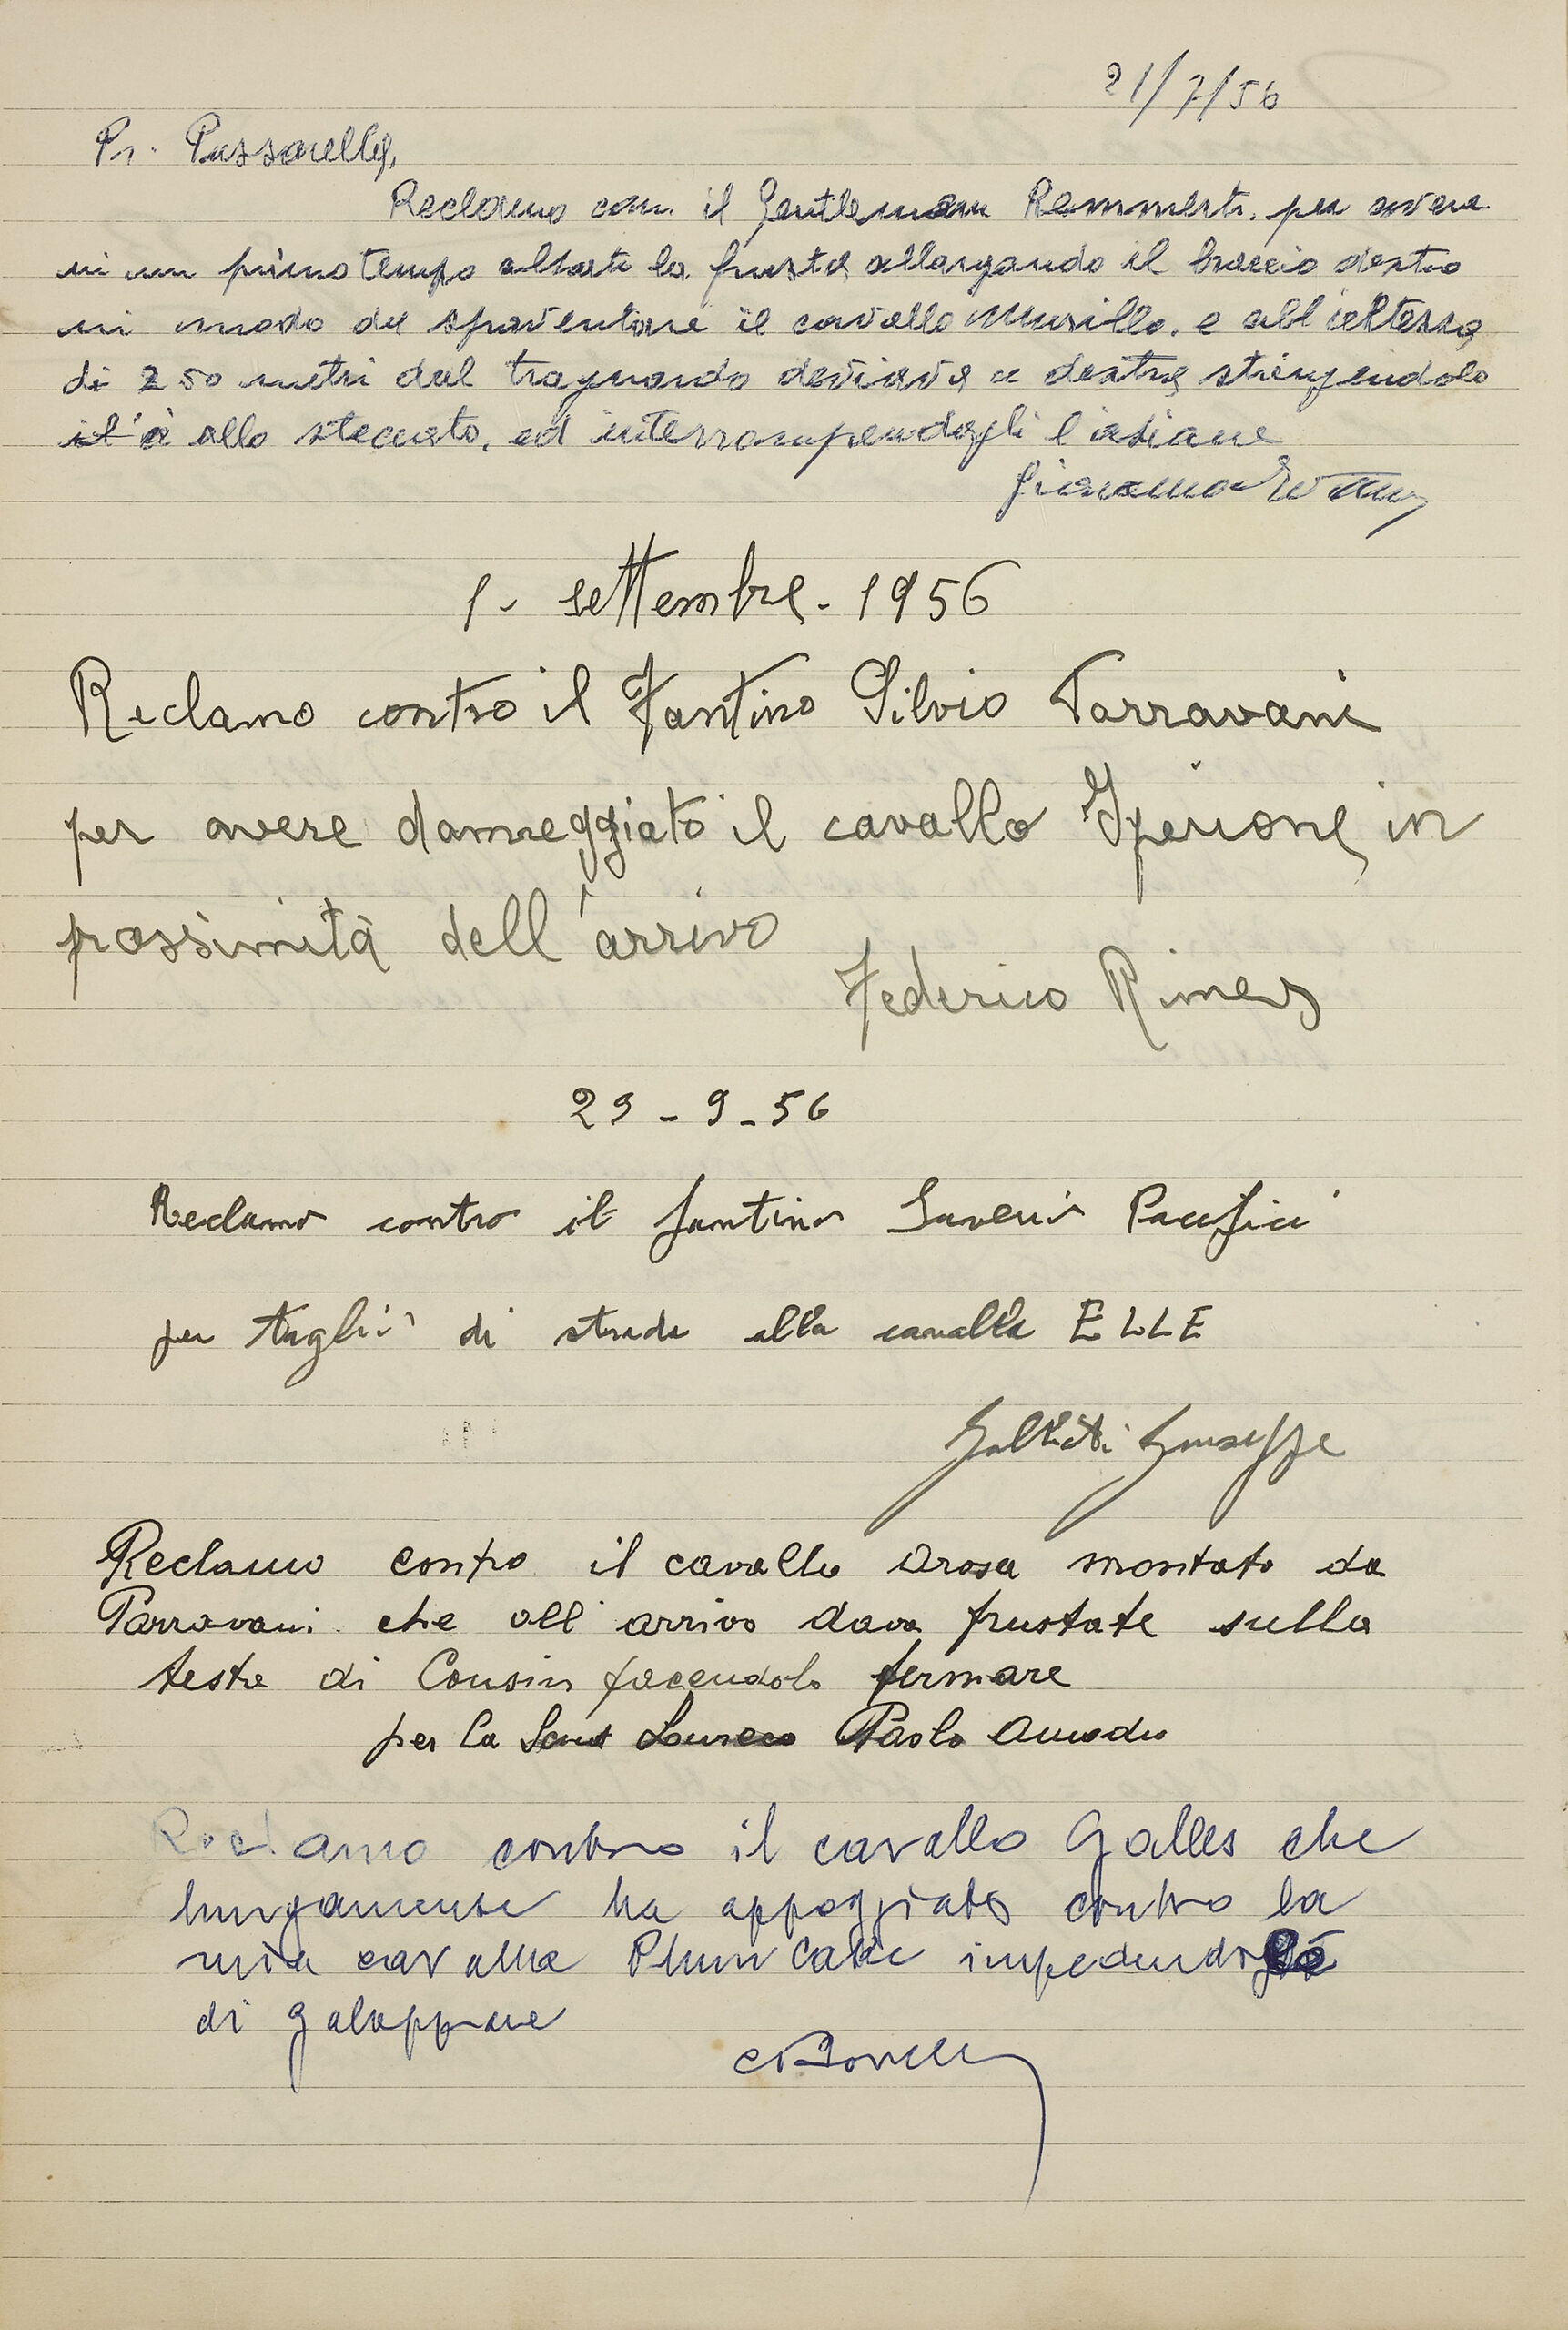 21/7/56
Pr. Passarella,
Reclamo con il Gentleman per avere
in un primo tempo alzato la frusta allargando il braccio destro
in modo da spaventare il cavallo Murillo. e all'altezza
di 250 metri dal traguardo deviava a destra stringendolo
allo steccato, ed interrompendogli l'azione
1 - settembre - 1956
Reclamo contro il Fantino Silvio Parravani
per avere danneggiato il cavallo Iperione in
prossimità dell'arrivo
Federico Rimes
29 - 9 - 56
Reclamo contro il fantino Saverio Pacifici
per taglio di strada alla cavalla ELLE
Giuseppe
Reclamo contro il cavallo Orosa montato da
Parravani che all'arrivo dava frustate sulla
testa di Cousin facendolo fermare
per la Paolo Amodio
Reclamo contro il cavallo Galles che
lungamente ha appoggiato contro la
mia cavalla Plum Cake
di galoppare